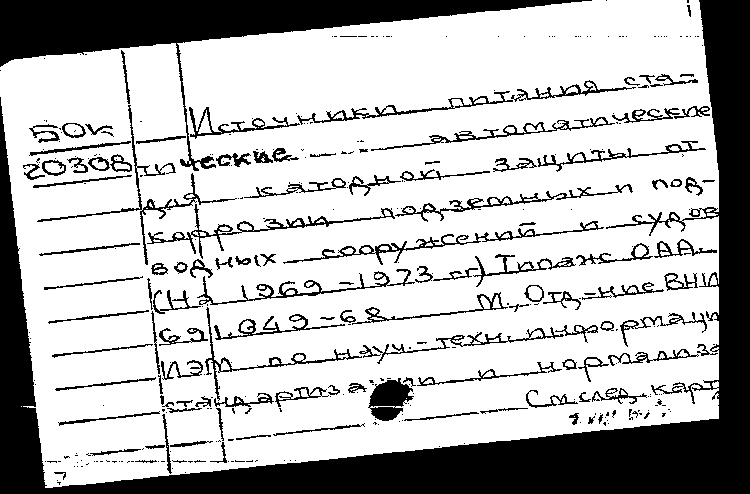 БОК
20308
Источники питания ста-
тические автоматические
для катодной защиты от
коррозии подземных и под-
водных сооружений и судов
(На 1969-1973 гг) Типаж ОАА.
691.049-68. М., Отд-ние ВНИ
ИЭМ по науч.-техн. информаци
стандартизации и нормализа
См.след.карт